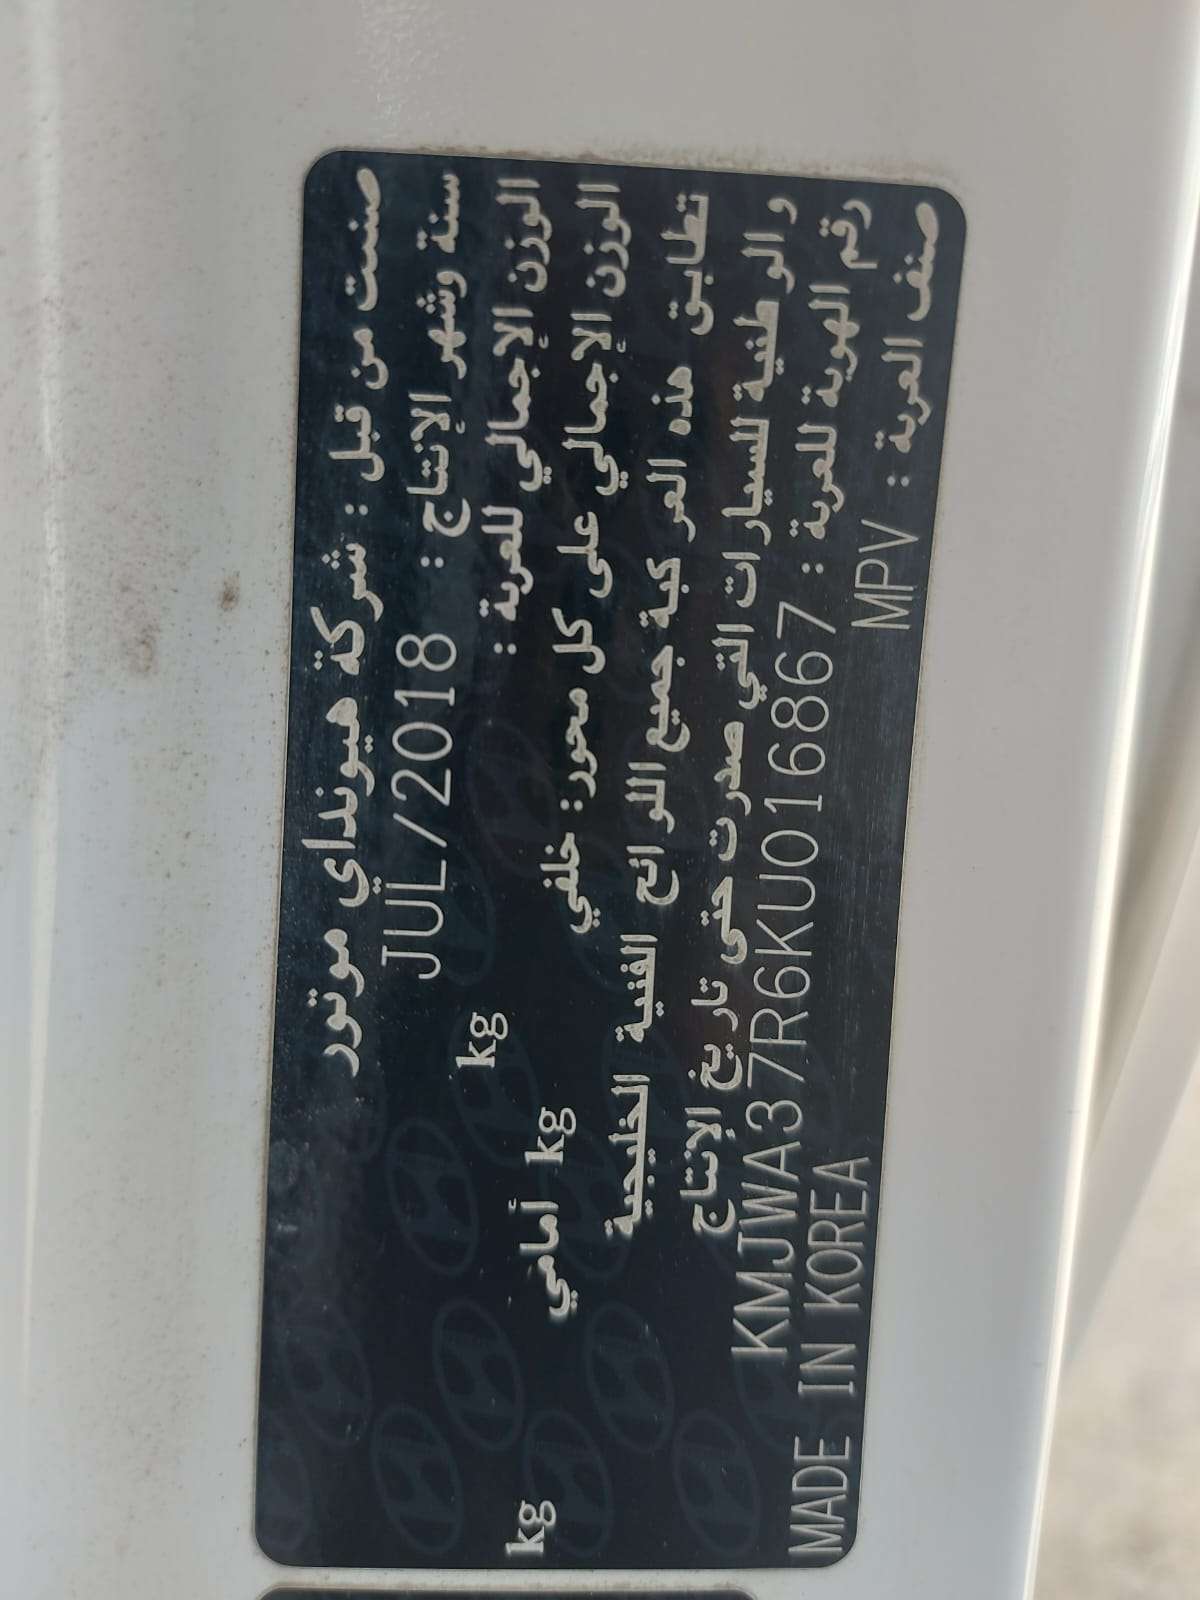 صنعت من قبل : شركة هيونداي موتور
سنة وشهر الإنتاج : JUL/2018
الوزن الإجمالي للعربة : kg
الوزن الإجمالي على كل محور: خلفي kg أمامي kg
تطابق هذه العركبة جميع اللوائح الفنية الخليجية
والوطنية للسيارات التي صدرت حتى تاريخ الإنتاج
رقم الهوية للعربة : KMJWA37R6KU016867
صنف العربة : MPV MADE IN KOREA